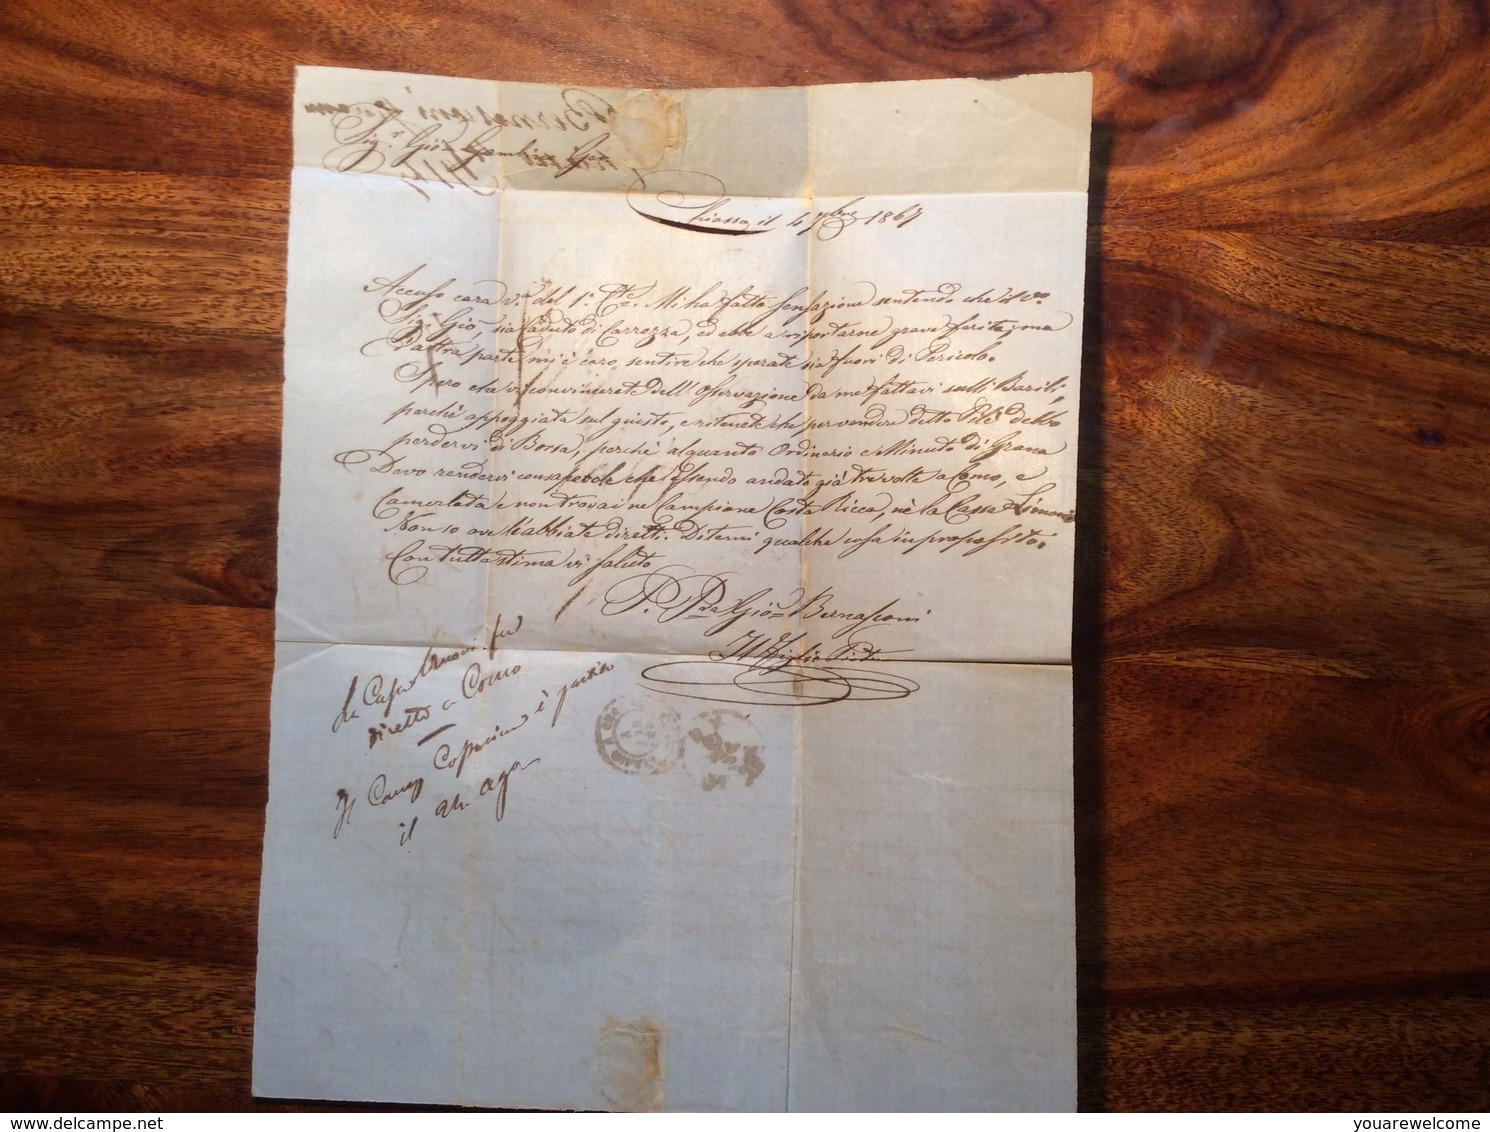 Bernasconi
Sig.r Gio.
Chiasso, il 4 7bre 1867
Accuso cara v.a del 1.o C.te. Mi ha fatto sensazione sentendo che il vo.
Sig. Gio, sia caduto di Carrozza, ed ebbe a riportarne grave ferite, ma
d'altra parte mi è caro sentire che sperate sia fuori di Pericolo.
Spero che vi convincerete dell'Osservazione da me fattavi sulli Barili,
perchè appoggiata sul giusto, e ritenete che per vendere detto Pilè debbo
perdervi di Borsa, perchè alquanto Ordinario e Minuto di Grana
Devo rendervi consapevole che Essendo andato già tre volte a Como, e
Camerlata e non trovai ne Campione Costa Ricca, nè la Cassa Limoni
Non so ove l'abbiate diretti. Ditemi qualche cosa in proposito.
Con tutta stima vi saluto
P. Pra Gio. Bernasconi
Il Figlio
La Cassa limoni fu
diretto a Como
Il Camp è partito
il 24 ago
www.delcampe.net
youarewelcome